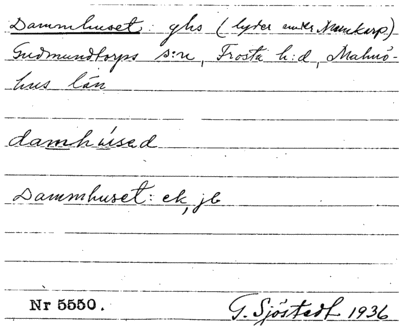 Dammhuset: ghs (lyder under Munkarp)
Gudmundtorps s:n, Frosta h:d, Malmö-
hus län
damhúsed
Dammhuset: ek, jb
Nr 5550.
G. Sjöstedt 1936